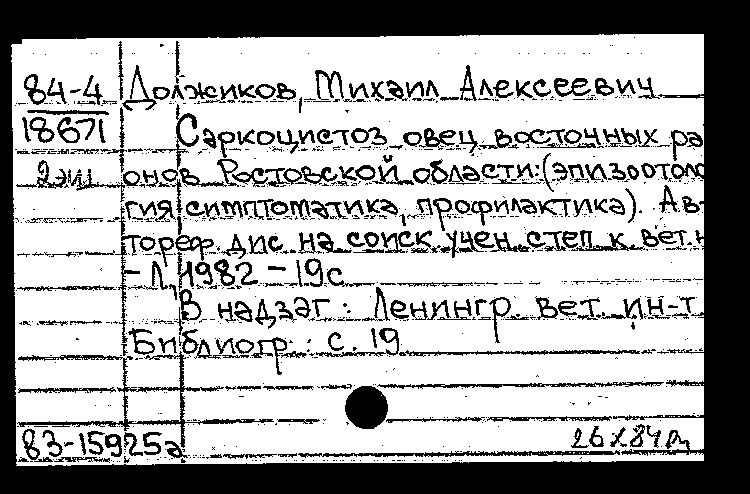 84-4 Должиков, Михаил Алексеевич
18671 Саркоцистоз овец восточных ра
2 экз онов Ростовской области: (эпизоотоло
гия симптоматика, профилактика). Ав-
тореф. дис на соиск учен. степ к вет. н
- Л, 1982 - 19с
В надзаг: Ленингр. вет. ин-т.
Библиогр.: с. 19
83-15925а 26 X 84